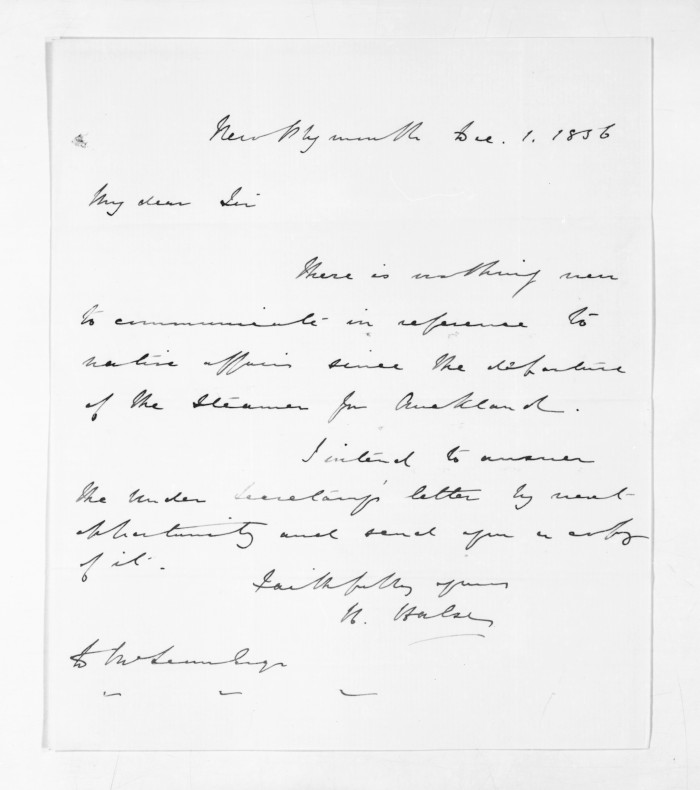 New Plymouth Dec. 1. 1856
My dear Sir
There is nothing new
to communicate in reference to
native affairs since the departure
of the Steamer for Auckland.
I intend to answer
the Under Secretary's letter by next
opportunity and send you a copy
of it.
Faithfully yours
H. Halse
D McLean Esqr